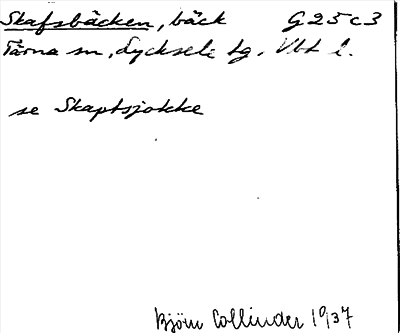 Skafsbäcken, bäck G 25 c 3
Tärna sn, Lycksele lg. Vbt l.
se Skaptsjokke
Björn Collinder 1937